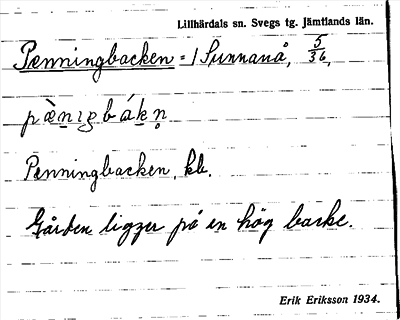 Lillhärdals sn. Svegs tg. Jämtlands län.
Penningbacken = 1 Sunnanå, 5/36,
Penningbacken, kb.
Gården ligger på en hög backe.
Erik Eriksson 1934.